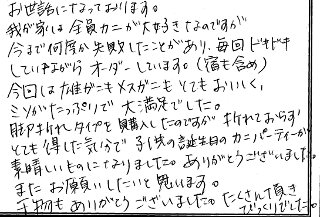 お世話になっております。
我が家は全員カニが大好きなのですが
今まで何度か失敗したことがあり、毎回ドキドキ
していながらオーダーしています。(宿も含め)
今回は雄ガニもメスガニもとてもおいしく、
ミソがたっぷりで大満足でした。
脚折れタイプを購入したのですが折れておらず
とても得した気分で子供の誕生日のカニパーティーが
素晴しいものになりました。ありがとうございました。
またお願いしたいと思います。
干物もありがとうございました。たくさん頂き
びっくりでした。